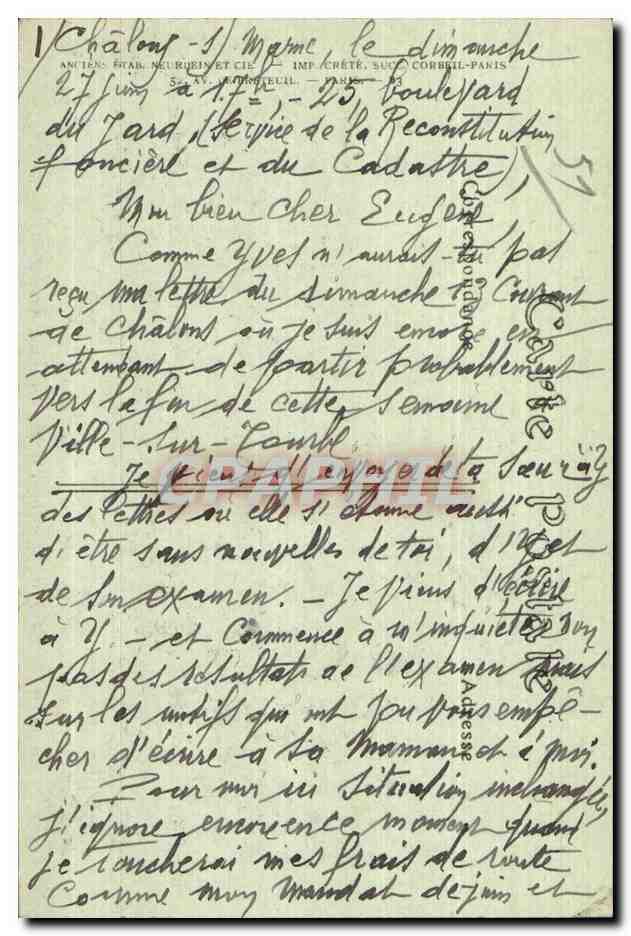 1/ Châlons-s/Marne, le dimanche
ANCIENS ETAB. NEURDEIN ET CIE — IMP. CRÉTÉ, SUCC. CORBEIL-PARIS
52, AV. DE BRETEUIL. — PARIS.
27 juin à 17h, - 25, boulevard
du Jard, (Service de la Reconstitution
foncière et du Cadastre),
51
Mon bien cher Eugène,
Comme Yves n'aurais-tu pas
reçu ma lettre du dimanche courant
de Châlons où je suis encore en
attendant de partir probablement
vers la fin de cette semaine
Ville-sur-Tourbe,
Je viens d' de ta soeur à Y
des lettres où elle s'étonne aussi
d'être sans nouvelles de toi, d'Y et
de son examen. - Je viens d'écrire
à Y. - et commence à m'inquiéter non
pas des résultats de l'examen mais
sur les motifs qui ont pu vous empê-
cher d'écrire à sa Maman et à moi.
Pour moi ici situation inchangée,
j'ignore encore en ce moment quand
je toucherai mes frais de route
comme mon mandat de juin et
Correspondance
Carte postale
Adresse
CPAPHIL